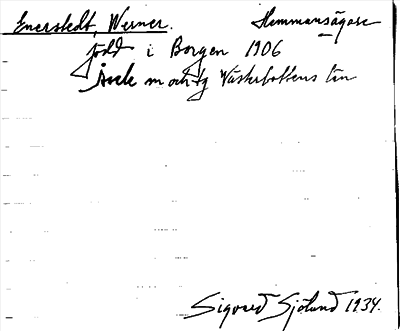 Enerstedt, Werner. Hemmansägare
född i Borgen 1906
Åsele m och tg Västerbottens län
Sigvard Sjölund 1934.